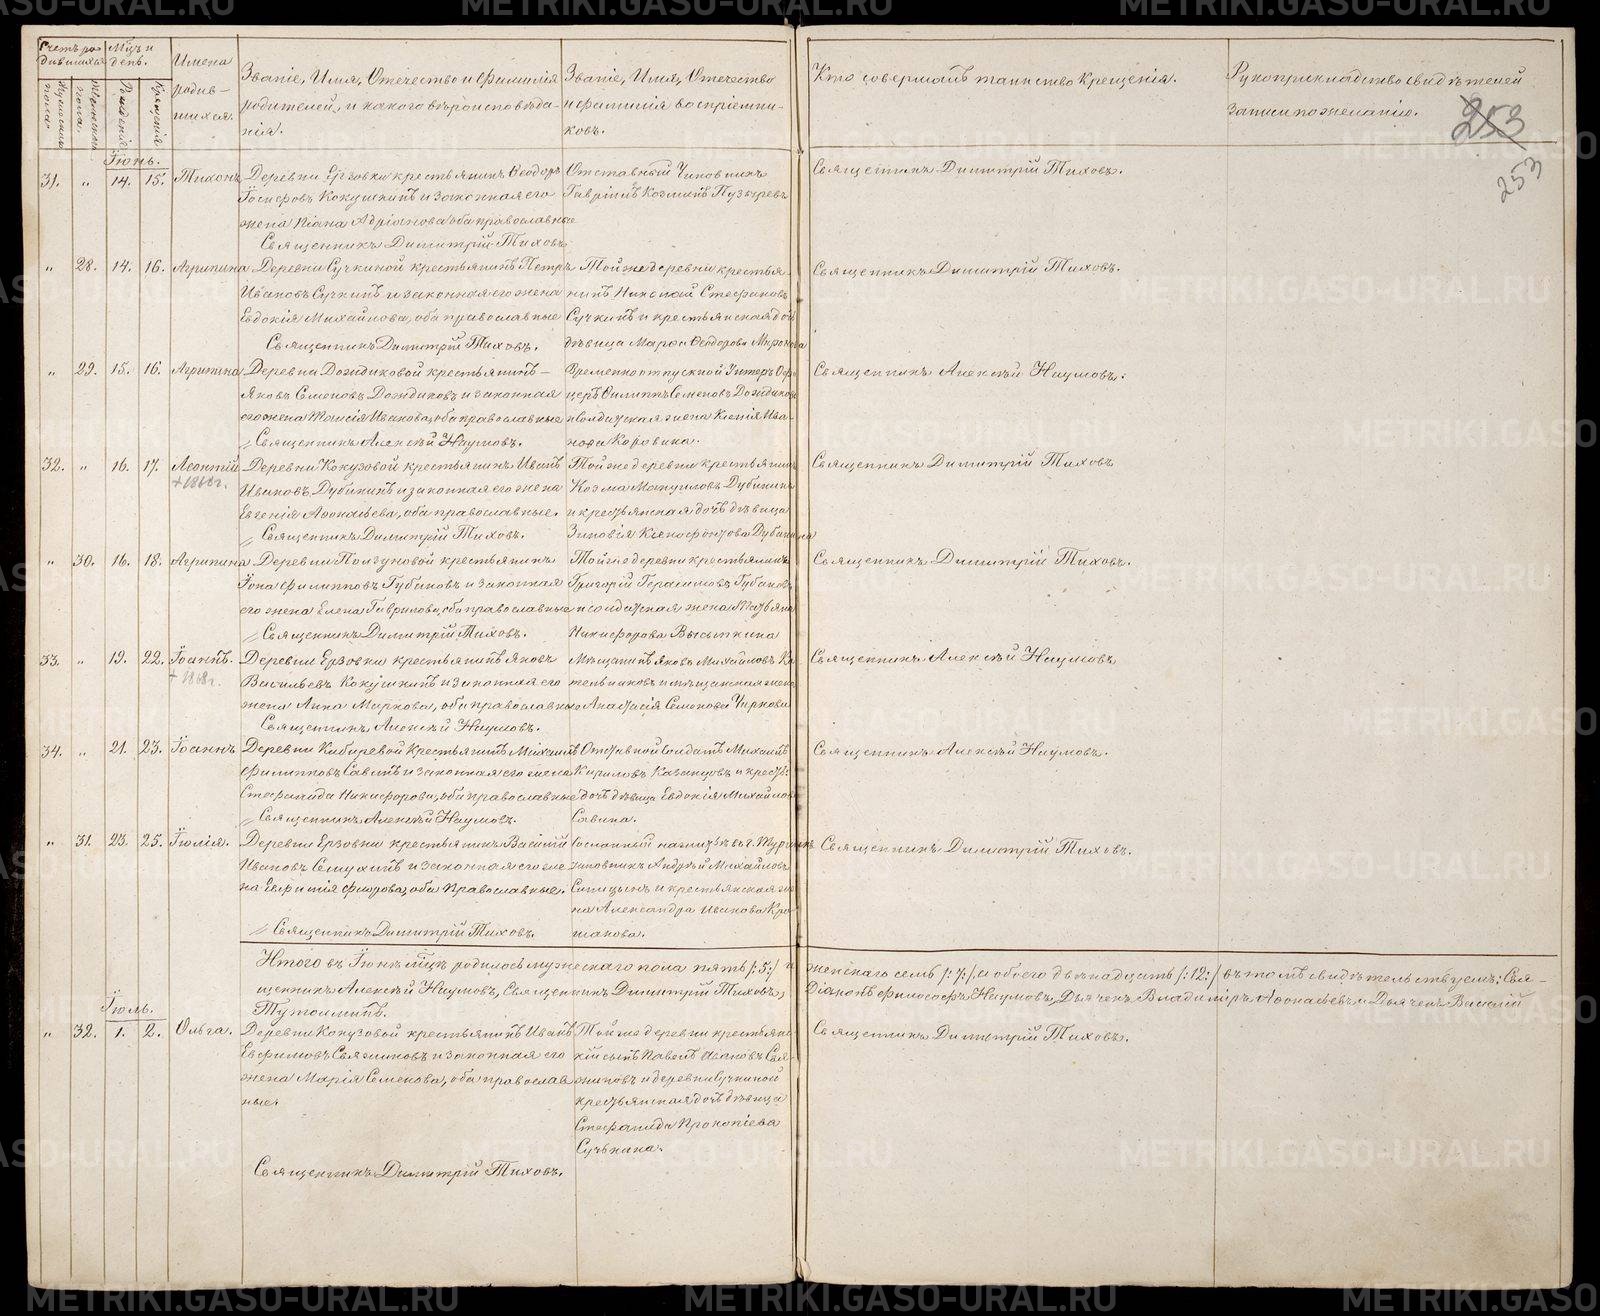 METRIKI.GASO-URAL.RU
Счетъ ро-
дившихся
Мѣсяцъ и
день.
Имена
родив-
шихся.
Званіе, Имя, Отечество и Фамилія
родителей, и какого вѣроисповѣда-
нія.
Званіе, Имя, Отечество
и фамилія воспріемни-
ковъ.
Кто совершалъ таинство Крещенія.
Рукоприкладство свидѣтелей
записи по желанію.
Мужескаго пола.
Женскаго пола.
Рожденія
Крещенія
253
253
Іюнь.
31. „ 14. 15. Тихонъ
Деревни Ерзовки крестьянинъ Ѳеодоръ
Іосифовъ Кокушкинъ и законная его
жена Адріанова оба православные
Священникъ Димитрій Тиховъ
Отставный Чиновникъ
Гавріилъ Козминъ Пузыревъ
Священникъ Димитрій Тиховъ.
„ 28. 14. 16. Агрипина
Деревни Сучкиной крестьянинъ Петръ
Ивановъ Сучкинъ и законная его жена
Евдокія Михайлова, оба православные
Священникъ Димитрій Тиховъ.
Той же деревни крестья-
нинъ Николай Стефановъ
Сучкинъ и крестьянская дочь
дѣвица Марѳа Ѳеодорова Миронова
Священникъ Димитрій Тиховъ.
„ 29. 15. 16. Агрипина
Деревни Дождиковой крестьянинъ
Яковъ Семеновъ Дождиковъ и законная
его жена Таисія Иванова, оба православные
Священникъ Алексѣй Наумовъ.
Временно отпускной Унтеръ Офи-
церъ Филиппъ Семеновъ Дождиковъ
и солдатская жена Ксенія Ива-
нова Коровина.
Священникъ Алексѣй Наумовъ.
32. „ 16. 17. Леонтій
+ 1868 г.
Деревни Кокузовой крестьянинъ Иванъ
Ивановъ Дубининъ и законная его жена
Евгенія Аѳонасьева, оба православные.
Священникъ Димитрій Тиховъ.
Той же деревни крестьянинъ
Козма Мануиловъ Дубининъ
и крестьянская дочь дѣвица
Зиновія Ксенофонтова Дубинина
Священникъ Димитрій Тиховъ
„ 30. 16. 18. Агрипина
Деревни Ползуновой крестьянинъ
Іона Филипповъ Губановъ и законная
его жена Елена Гаврилова, оба православные
Священникъ Димитрій Тиховъ.
Той же деревни крестьянинъ
Григорій Герасимовъ Губановъ
и солдатская жена Татьяна
Никифорова Высыпкина
Священникъ Димитрій Тиховъ.
33. „ 19. 22. Іоаннъ.
+ 1868 г.
Деревни Ерзовки крестьянинъ Яковъ
Васильевъ Кокушкинъ и законная его
жена Анна Маркова, оба православные
Священникъ Алексѣй Наумовъ.
Мѣщанинъ Яковъ Михайловъ Ко-
тельниковъ и мѣщанская жена
Анастасія Семенова Чиркова
Священникъ Алексѣй Наумовъ
34. „ 21. 23. Іоаннъ
Деревни Кибиревой крестьянинъ Михаилъ
Филипповъ Савинъ и законная его жена
Стефанида Никифорова, оба православные
Священникъ Алексѣй Наумовъ.
Отставной солдатъ Михаилъ
Кириловъ Казанцовъ и крест.
дочь дѣвица Евдокія Михайлова
Савина.
Священникъ Алексѣй Наумовъ.
„ 31. 23. 25. Іюлія.
Деревни Ерзовки крестьянинъ Василій
Ивановъ Семухинъ и законная его же-
на Оба Православные.
Священникъ Димитрій Тиховъ.
Сосланный на жительство въ г. Туринскъ
чиновникъ Андрей Михайловъ
Синицынъ и крестьянская же-
на Александра Иванова
Священникъ Димитрій Тиховъ.
Итого въ Іюнѣ мѣсяцѣ родилось мужескаго пола пять /:5:/ и женскаго семь /:7:/, а обоего двѣнадцать /:12:/ въ томъ свидѣтельствуемъ: Свя-
щенникъ Алексѣй Наумовъ, Священникъ Димитрій Тиховъ, Діаконъ Философъ Наумовъ, Дьячекъ Владиміръ Аѳонасьевъ и Дьячекъ Василій
Тутолминъ.
Іюль.
„ 32. 1. 2. Ольга.
Деревни Кокузовой крестьянинъ Иванъ
Евфимовъ Свяжиновъ и законная его
жена Марія Семенова, оба православ-
ные.
Священникъ Димитрій Тиховъ.
Той же деревни крестьянс-
кій сынъ Павелъ Ивановъ Свя-
жиновъ и деревни Сучкиной
крестьянская дочь дѣвица
Стефанида Прокопіева
Сучкина.
Священникъ Димитрій Тиховъ.